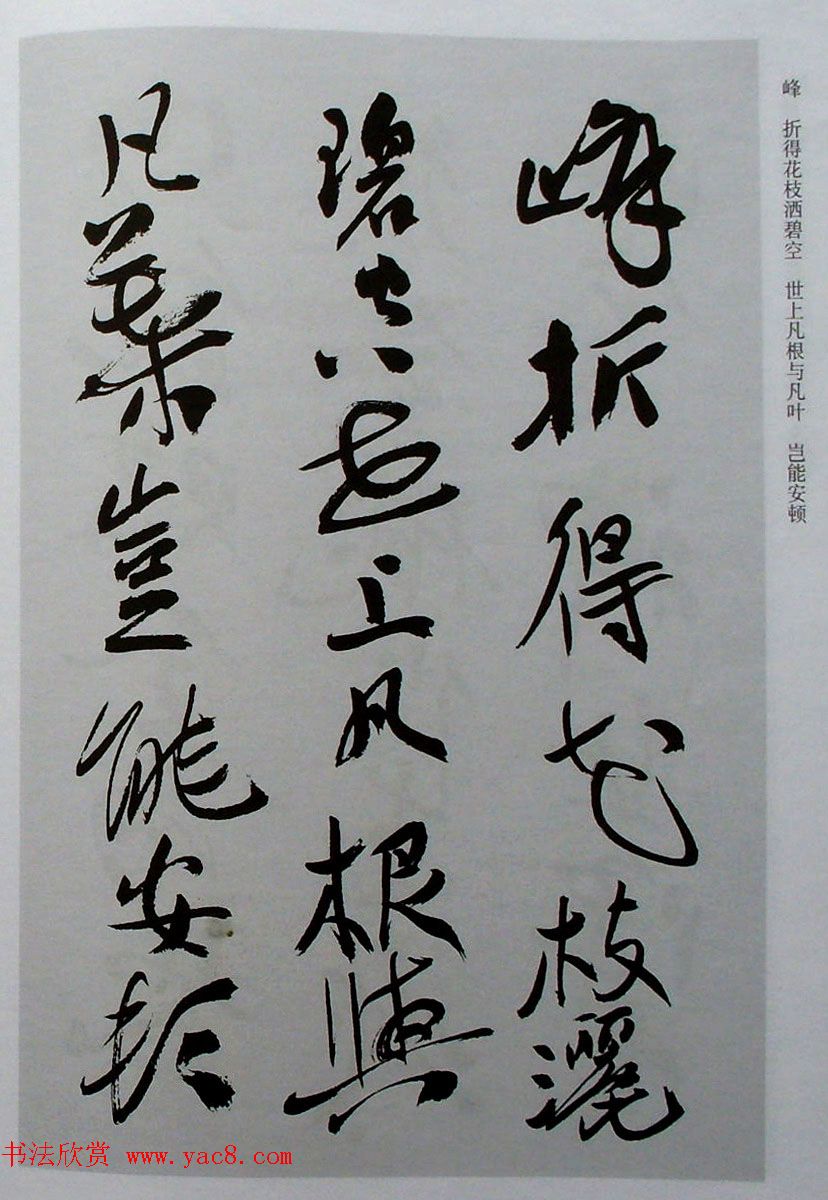 峰 折得花枝洒碧空 世上凡根与凡叶 岂能安顿
峰折得花枝灑
碧空世上凡根與
凡葉豈能安頓
书法欣赏 www.yac8.com